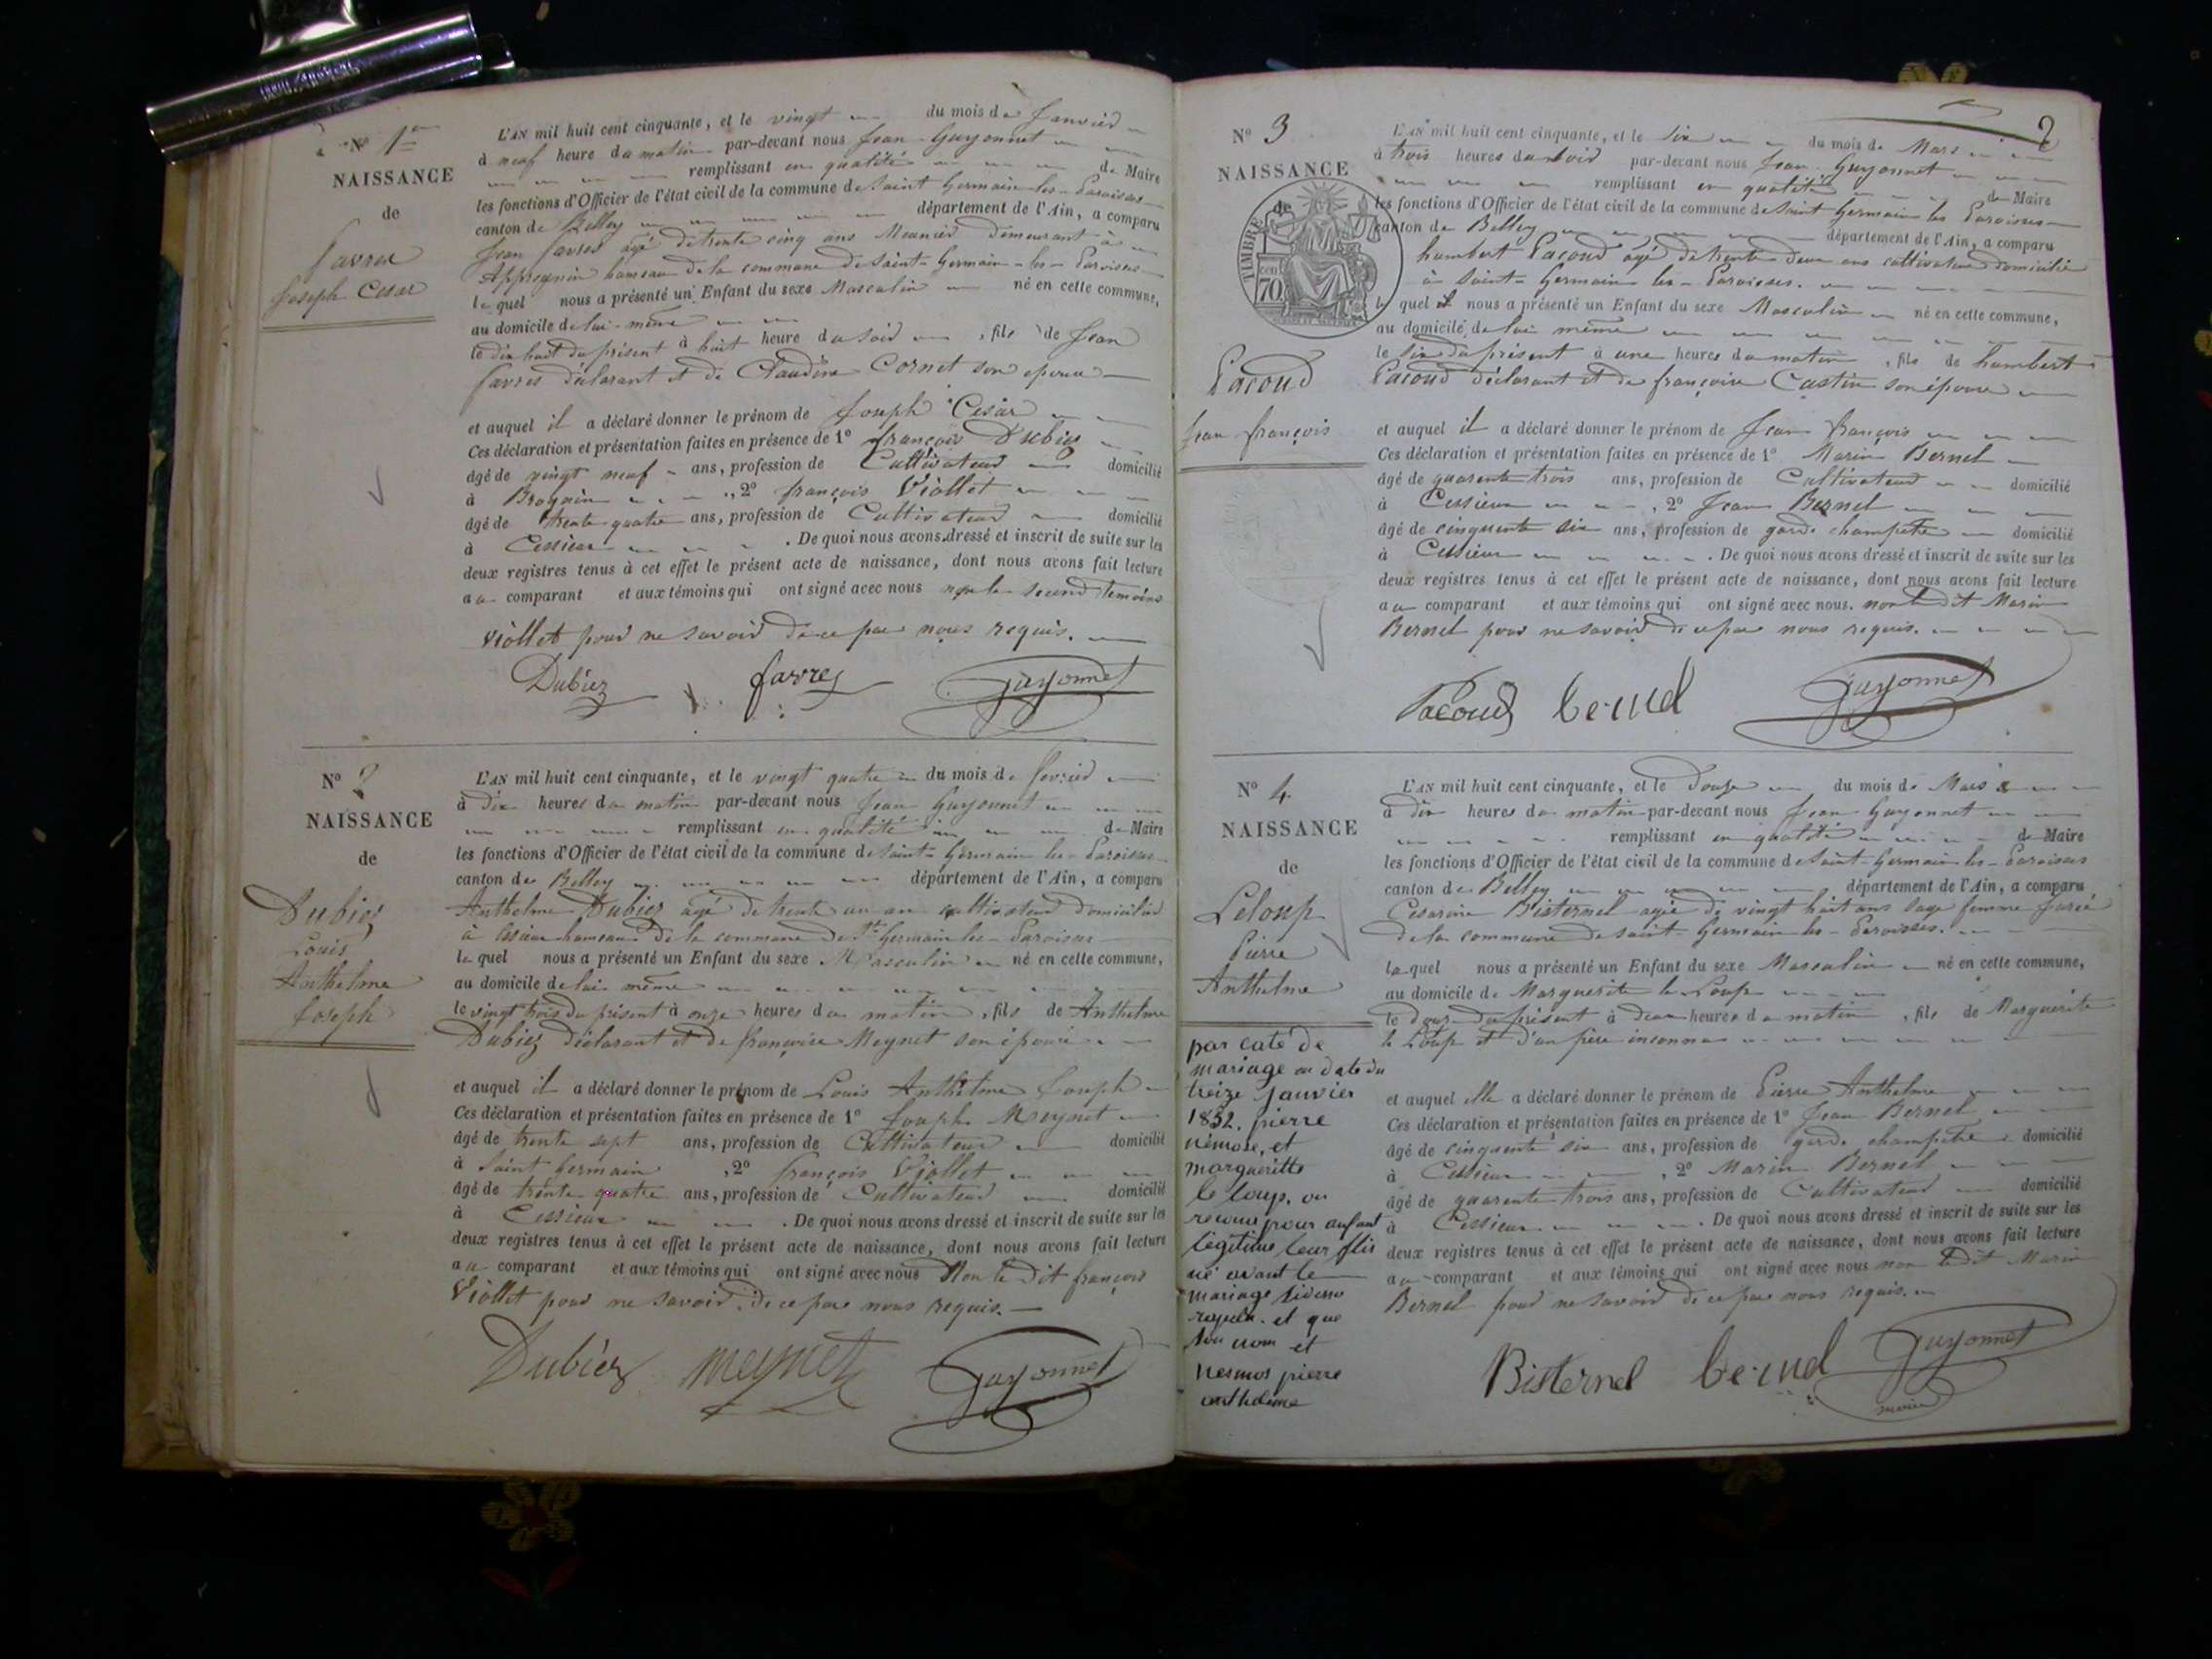 N° 1er
NAISSANCE
de
Favre
Joseph Cesar
L'AN mil huit cent cinquante, et le vingt du mois de Janvier
à neuf heure du matin par-devant nous Jean Guyonnet
remplissant en qualité de Maire
les fonctions d'Officier de l'état civil de la commune de Saint Germain-les-Paroisses
canton de Belley département de l'Ain, a comparu
Jean Favre agé de trente cinq ans Meunier demeurant à
Appregnin hameau de la commune de Saint-Germain-les-Paroisses
lequel nous a présenté un Enfant du sexe Masculin né en cette commune,
au domicile de lui-même
le dix huit du présent à huit heure du soir, fils de Jean
Favre déclarant et de Claudine Cornet son epouse
et auquel il a déclaré donner le prénom de Joseph Cesar
Ces déclaration et présentation faites en présence de 1° françois Dubiez
âgé de vingt neuf ans, profession de Cultivateur domicilié
à Brognin, 2° françois Viollet
âgé de trente quatre ans, profession de Cultivateur domicilié
à Cessieux. De quoi nous avons dressé et inscrit de suite sur les
deux registres tenus à cet effet le présent acte de naissance, dont nous avons fait lecture
au comparant et aux témoins qui ont signé avec nous non le second temoins
Viollet pour ne savoir de ce par nous requis.
Dubiez favre Guyonnet
N° 2
NAISSANCE
de
Dubiez
Louis
Anthelme
Joseph
L'AN mil huit cent cinquante, et le vingt quatre du mois de fevrier
à dix heures du matin par-devant nous Jean Guyonnet
remplissant en qualité de Maire
les fonctions d'Officier de l'état civil de la commune de Saint-Germain les-Paroisses
canton de Belley département de l'Ain, a comparu
Anthelme Dubiez agé de trente un an cultivateur domicilié
à Cessieux hameau de la commune de St Germain les-Paroisses
lequel nous a présenté un Enfant du sexe Masculin né en cette commune,
au domicile de lui même
le vingt trois du présent à onze heures du matin, fils de Anthelme
Dubiez déclarant et de françoise Meynet son épouse
et auquel il a déclaré donner le prénom de Louis Anthelme Joseph
Ces déclaration et présentation faites en présence de 1° Joseph Meynet
âgé de trente sept ans, profession de Cultivateur domicilié
à Saint Germain, 2° françois Viollet
âgé de trente quatre ans, profession de Cultivateur domicilié
à Cessieux. De quoi nous avons dressé et inscrit de suite sur les
deux registres tenus à cet effet le présent acte de naissance, dont nous avons fait lecture
au comparant et aux témoins qui ont signé avec nous Non le dit françois
Viollet pour ne savoir de ce par nous requis.
Dubiez Meynet Guyonnet
2
N° 3
NAISSANCE
de
TIMBRE
70
Pacoud
Jean françois
L'AN mil huit cent cinquante, et le six du mois de Mars
à trois heures du soir par-devant nous Jean Guyonnet
remplissant en qualité de Maire
les fonctions d'Officier de l'état civil de la commune de Saint-Germain les Paroisses
canton de Belley département de l'Ain, a comparu
humbert Pacoud agé de trente deux ans cultivateur domicilié
à Saint-Germain les-Paroisses.
lequel nous a présenté un Enfant du sexe Masculin né en cette commune,
au domicile de lui même
le six du présent à une heures du matin, fils de humbert
Pacoud déclarant et de françoise Castin son épouse
et auquel il a déclaré donner le prénom de Jean françois
Ces déclaration et présentation faites en présence de 1° Marin Bernel
âgé de quarente trois ans, profession de Cultivateur domicilié
à Cessieux, 2° Jean Bernel
âgé de cinquente six ans, profession de garde champetre domicilié
à Cessieux. De quoi nous avons dressé et inscrit de suite sur les
deux registres tenus à cet effet le présent acte de naissance, dont nous avons fait lecture
au comparant et aux témoins qui ont signé avec nous. non le dit Marin
Bernel pour ne savoir de ce par nous requis.
Pacoud bernel Guyonnet
N° 4
NAISSANCE
de
Leloup
Pierre
Anthelme
par cate de
mariage en date du
treize janvier
1852. pierre
nemose, et
margueritte
le loup. on
reconu pour anfant
legitime leur flis
né avant le
mariage sidesu
rapelé. et que
son nom et
nesmos pierre
anthelme
L'AN mil huit cent cinquante, et le Douze du mois de Mars
à dix heures du matin par-devant nous Jean Guyonnet
remplissant en qualité de Maire
les fonctions d'Officier de l'état civil de la commune de Saint-Germain les-Paroisses
canton de Belley département de l'Ain, a comparu
Cesarine Bisternel agée de vingt huit ans sage femme jurée
de la commune de Saint-Germain les-Paroisses.
laquel nous a présenté un Enfant du sexe Masculin né en cette commune,
au domicile de Marguerite le Loup
le douze du présent à deux heures du matin, fils de Marguerite
le Loup et d'un père inconnu
et auquel elle a déclaré donner le prénom de Pierre Anthelme
Ces déclaration et présentation faites en présence de 1° Jean Bernel
âgé de cinquente six ans, profession de garde champetre domicilié
à Cessieux, 2° Marin Bernel
âgé de quarente trois ans, profession de Cultivateur domicilié
à Cessieux. De quoi nous avons dressé et inscrit de suite sur les
deux registres tenus à cet effet le présent acte de naissance, dont nous avons fait lecture
au comparant et aux témoins qui ont signé avec nous non ledit Marin
Bernel pour ne savoir de ce par nous requis.
Bisternel bernel Guyonnet
maire